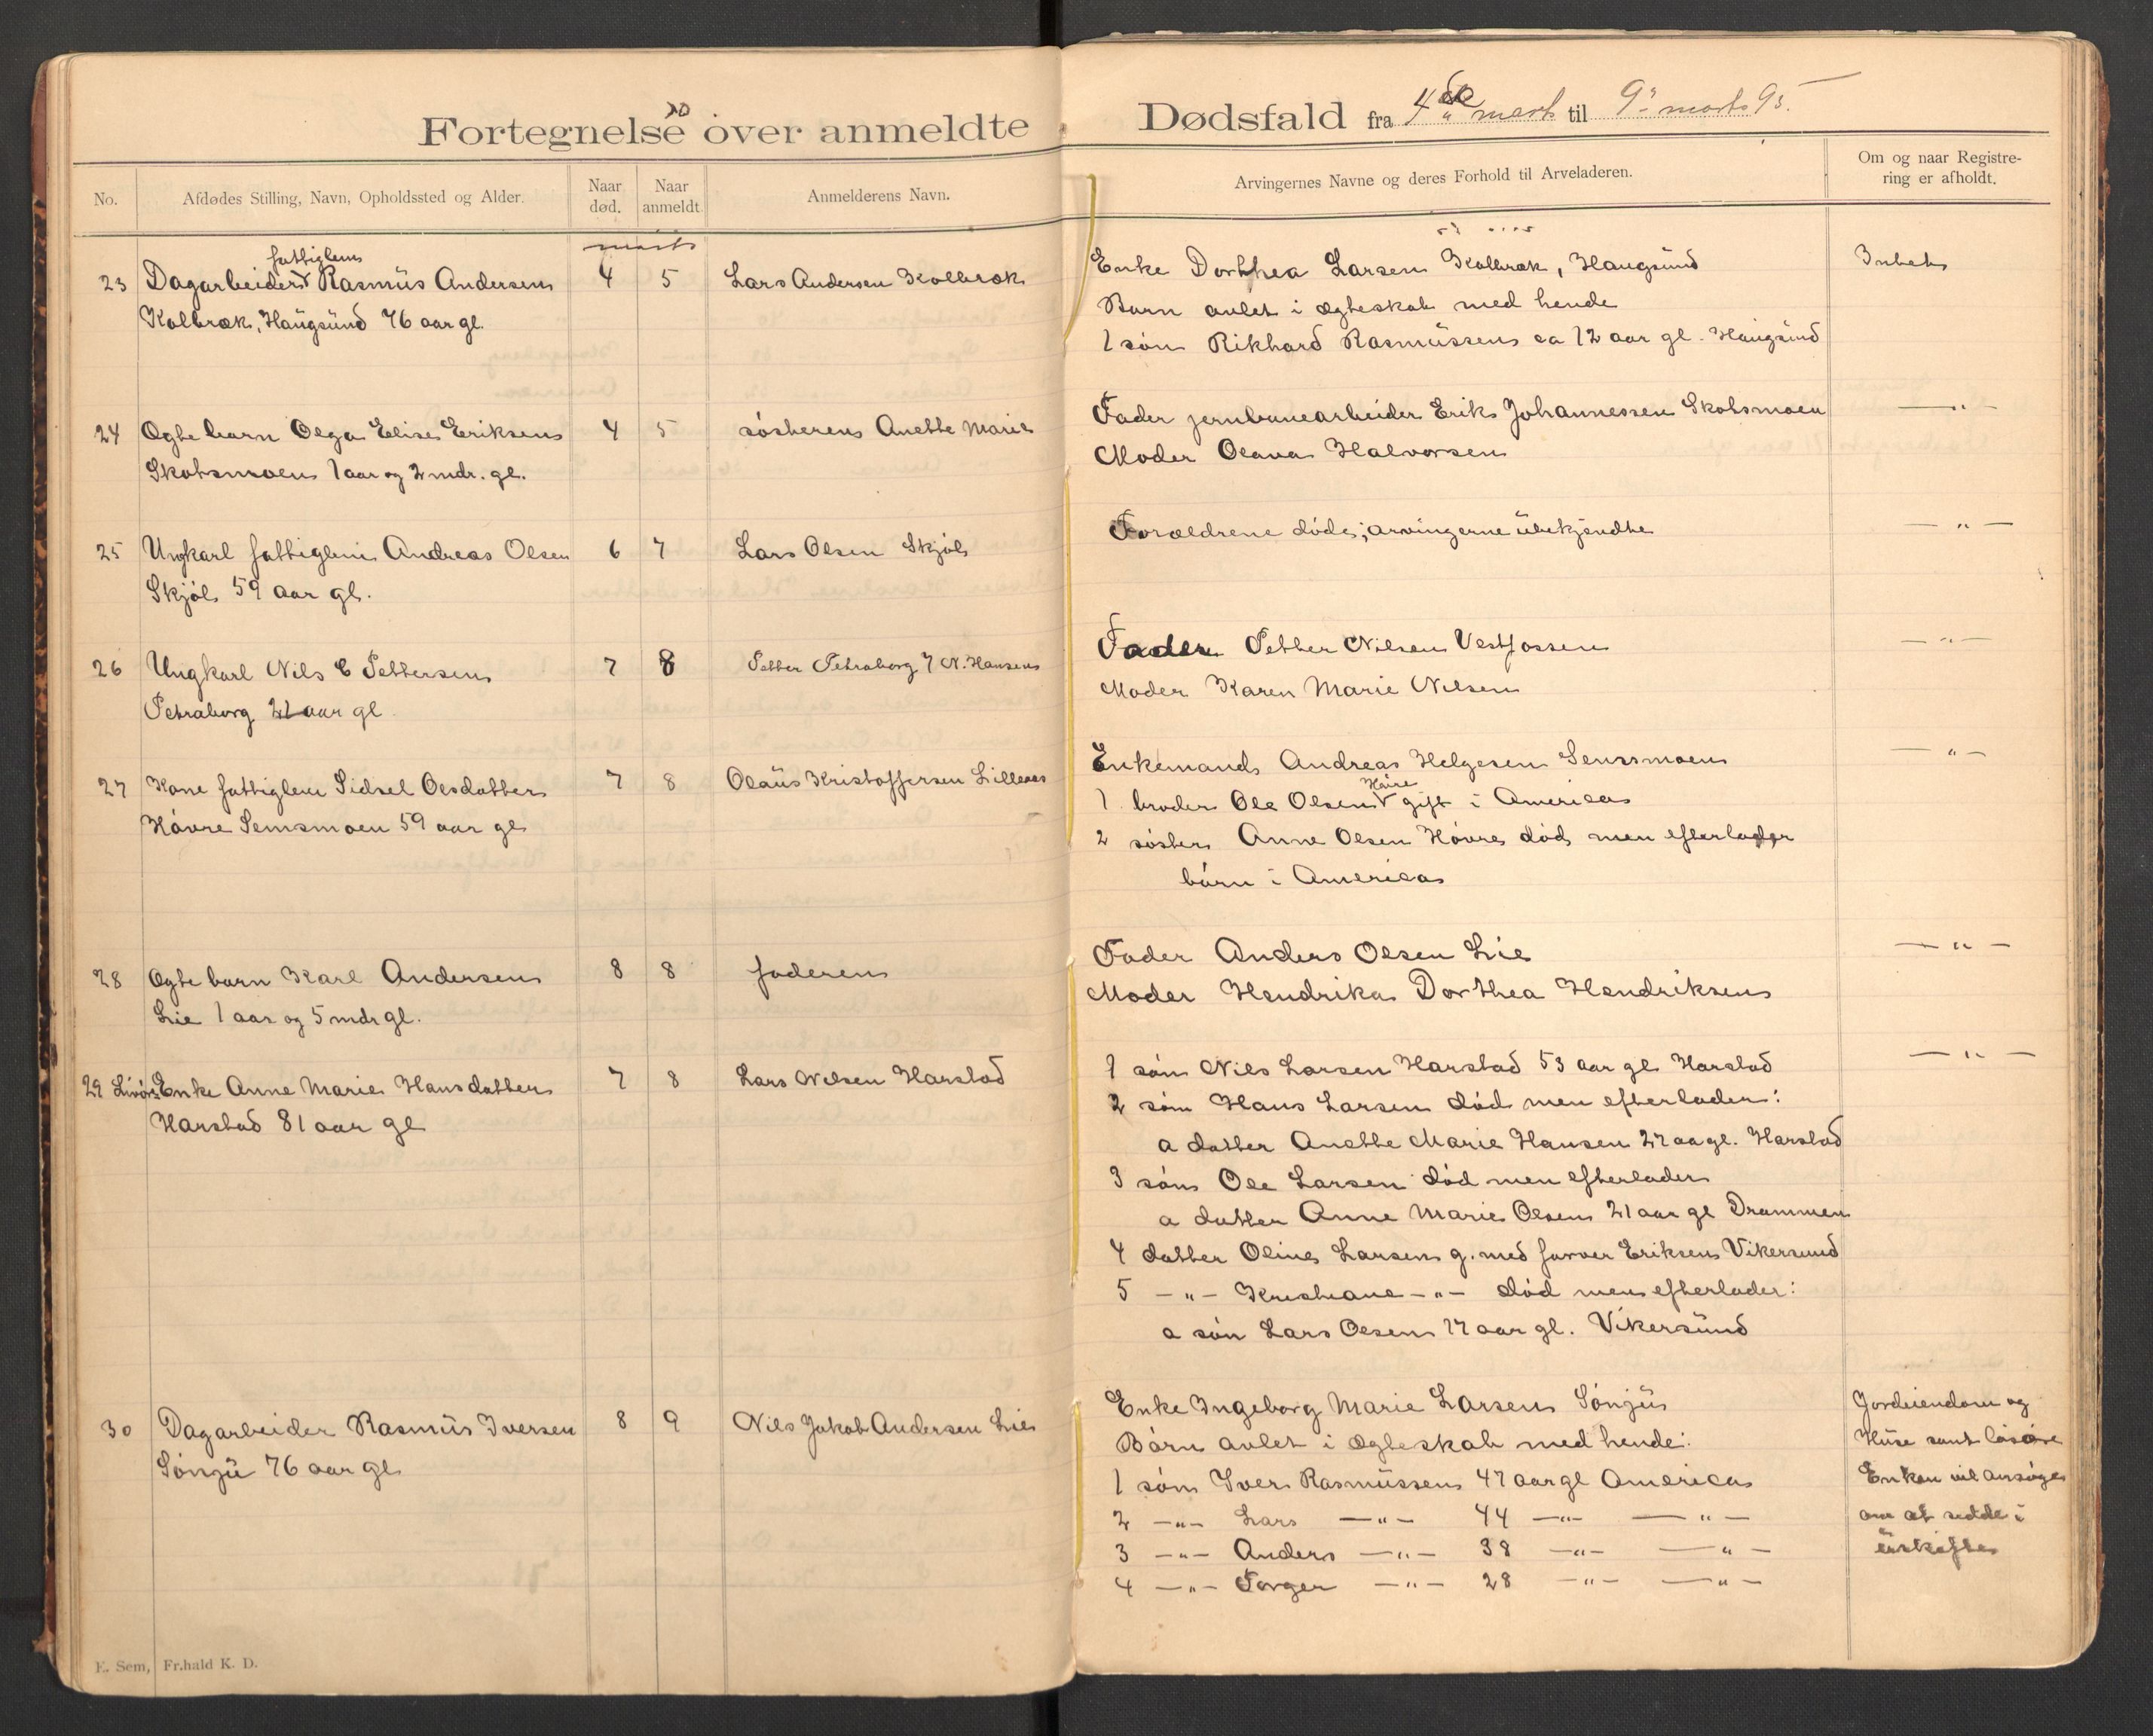 Fortegnelse over anmeldte Dødsfald fra 4de marts til 9" marts 95.
No. Afdødes Stilling, Navn, Opholdssted og Alder. Naar død. Naar anmeldt. Anmelderens Navn. Arvingernes Navne og deres Forhold til Arveladeren. Om og naar Registrering er afholdt.
marts
fattiglem
23 Dagarbeider Rasmüs Andersen 4 5 Lars Andersen Kolbræk Enke Dorthea Larsen Kolbræk, Haugsünd Intet
Kolbræk, Haügsünd 76 aar gl. Barn avlet i ægteskab med hende
1 søn Rikhard Rasmüssen ca 12 aar gl. Haügsünd
24 Ægte barn Olga Elise Eriksen 4 5 søsteren Anette Marie Fader jernbanearbeider Erik Johannessen Skotsmoen —"—
Skotsmoen 1 aar og 2 mdr. gl. Moder Olava Halvorsen
25 Ungkarl fattiglem Andreas Olsen 6 7 Lars Olsen Skjøl Forældrene døde; arvingerne übekjendte —"—
Skjøl 59 aar gl.
26 Ungkarl Nils C Pettersen 7 8 Petter Petraborg 7 N. Hansen Fader Petter Nilsen Vestfossen —"—
Petraborg 21 aar gl. Moder Karen Marie Nilsen
27 Kone fattiglem Sidsel Olsdatter 7 8 Olaüs Kristoffersen Lilleaas Enkemand Andreas Helgesen Semsmoen —"—
Høvre Semsmoen 59 aar gl 1 broder Ole Olsen Høvre gift i America
2 søster Anne Olsen Høvre død men efterlader
børn i America
28 Ægte barn Karl Andersen 8 8 faderen Fader Anders Olsen Lie —"—
Lie 1 aar og 5 mdr gl. Moder Hendrika Dorthea Hendriksen
29 Enke Anne Marie Hansdatter 7 8 Lars Nilsen Harstad 1 søn Nils Larsen Harstad 53 aar gl Harstad —"—
Harstad 81 aar gl 2 søn Hans Larsen død men efterlader:
a datter Anette Marie Hansen 27 aa gl. Harstad
3 søn Ole Larsen død men efterlader
a datter Anne Marie Olsen 21 aar gl Drammen
4 datter Oline Larsen g. med farver Eriksen Vikersund
5 —"— Kristiane —"— død men efterlader:
a søn Lars Olsen 17 aar gl. Vikersünd
30 Dagarbeider Rasmüs Iversen 8 9 Nils Jakob Andersen Lie Enke Ingeborg Marie Larsen Sønjü Jordeiendom og
Sønjü 76 aar gl Børn avlet i ægteskab med hende: Hüse samt løsøre
1 søn Iver Rasmüssen 47 aar gl America Enken vil ansøge
2 —"— Lars —"— 44 —"— —"— om at sidde i
3 —"— Anders —"— 38 —"— —"— üskifte
4 —"— Torger —"— 28 —"— —"—
E. Sem, Fr.hald K. D.